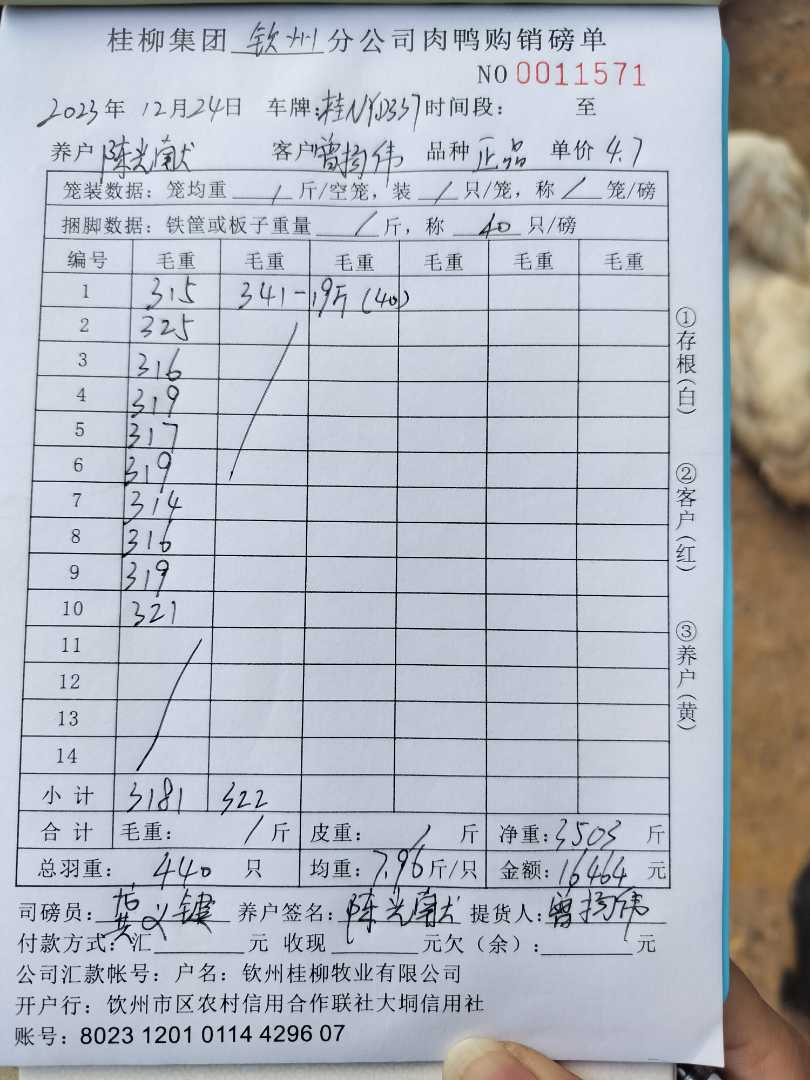 桂柳集团 钦州 分公司肉鸭购销磅单
NO 0011571
2023年 12月24日 车牌:桂NYD337 时间段: 至
养户 陈光南犬 客户 曾扬伟 品种 正品 单价 4.7
笼装数据: 笼均重 / 斤/空笼, 装 / 只/笼, 称 / 笼/磅
捆脚数据: 铁筐或板子重量 / 斤, 称 40 只/磅
编号 毛重 毛重 毛重 毛重 毛重 毛重
1 315 341-19斤(40)
2 325
3 316
4 319
5 317
6 319
7 314
8 316
9 319
10 321
11
12
13
14
小计 3181 322
合计 毛重: / 斤 皮重: / 斤 净重: 3503 斤
总羽重: 440 只 均重: 7.96 斤/只 金额: 16464 元
司磅员: 义键 养户签名: 陈光 提货人: 曾扬伟
付款方式: 汇 元 收现 元欠(余): 元
公司汇款帐号: 户名: 钦州桂柳牧业有限公司
开户行: 饮州市区农村信用合作联社大垌信用社
账号: 8023 1201 0114 4296 07
①存根(白)
②客户(红)
③养户(黄)